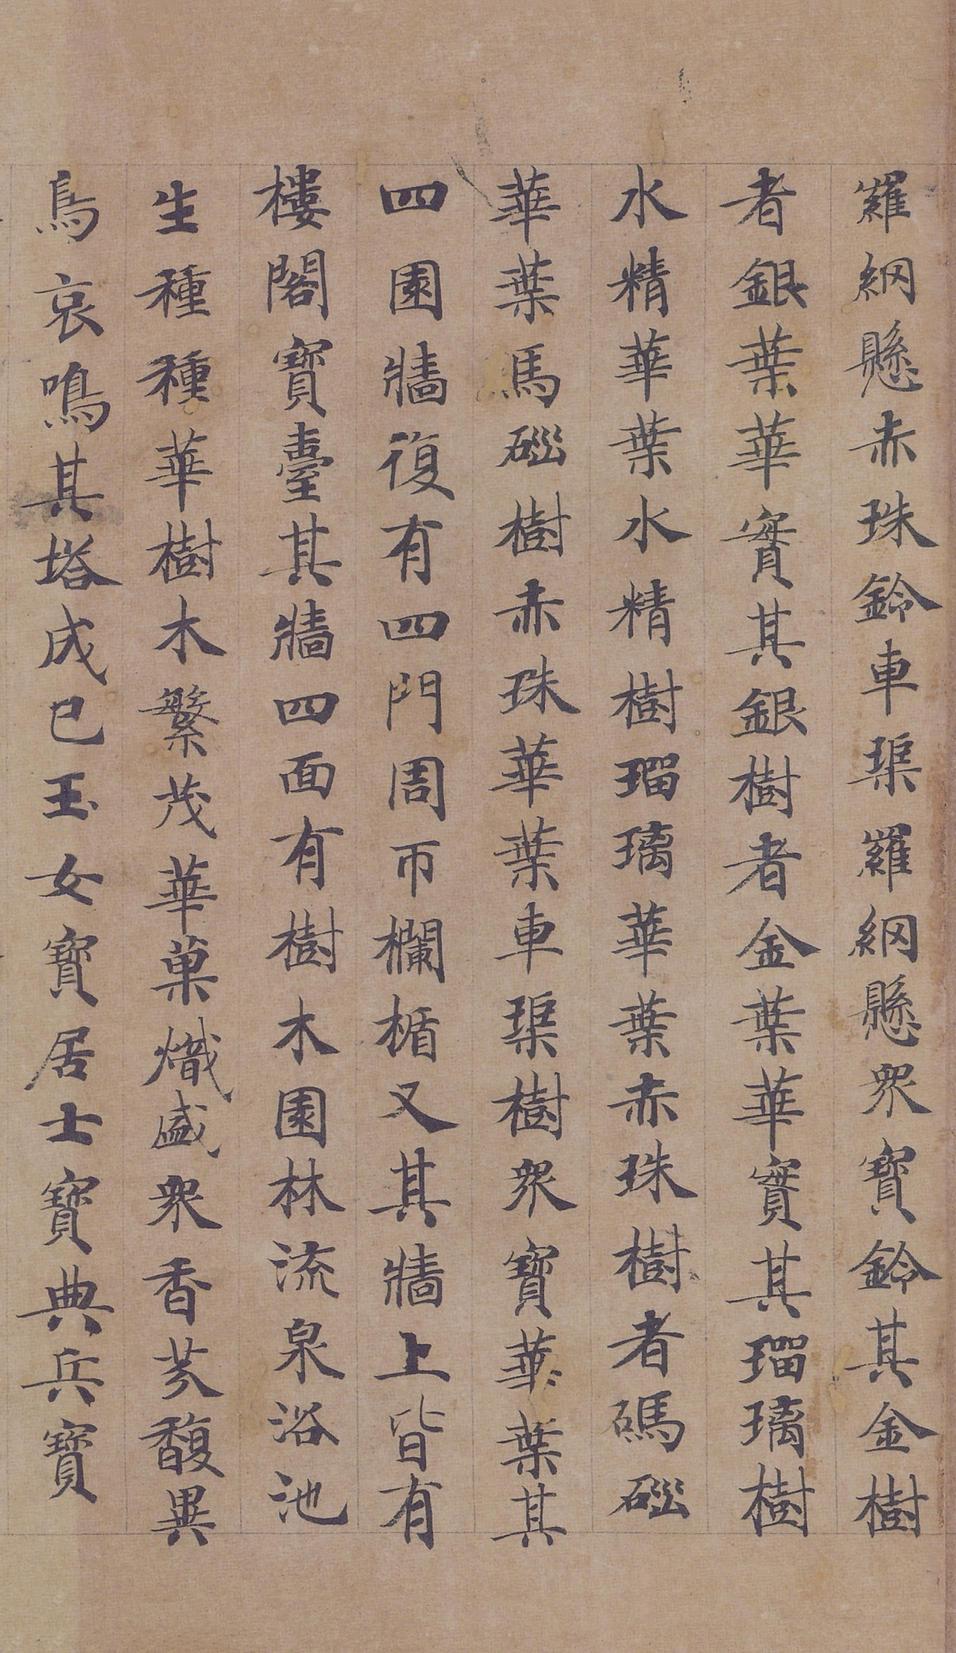 羅網懸赤珠鈴車𤦲羅網懸眾寶鈴其金樹
者銀葉華實其銀樹者金葉華實其瑠璃樹
水精華葉水精樹瑠璃華葉赤珠樹者碼碯
華葉馬碯樹赤珠華葉車𤦲樹眾寶華葉其
四園牆復有四門周帀欄楯又其牆上皆有
樓閣寶臺其牆四面有樹木園林流泉浴池
生種種華樹木繁茂華菓熾盛眾香芬馥異
鳥哀鳴其塔成已玉女寶居士寶典兵寶